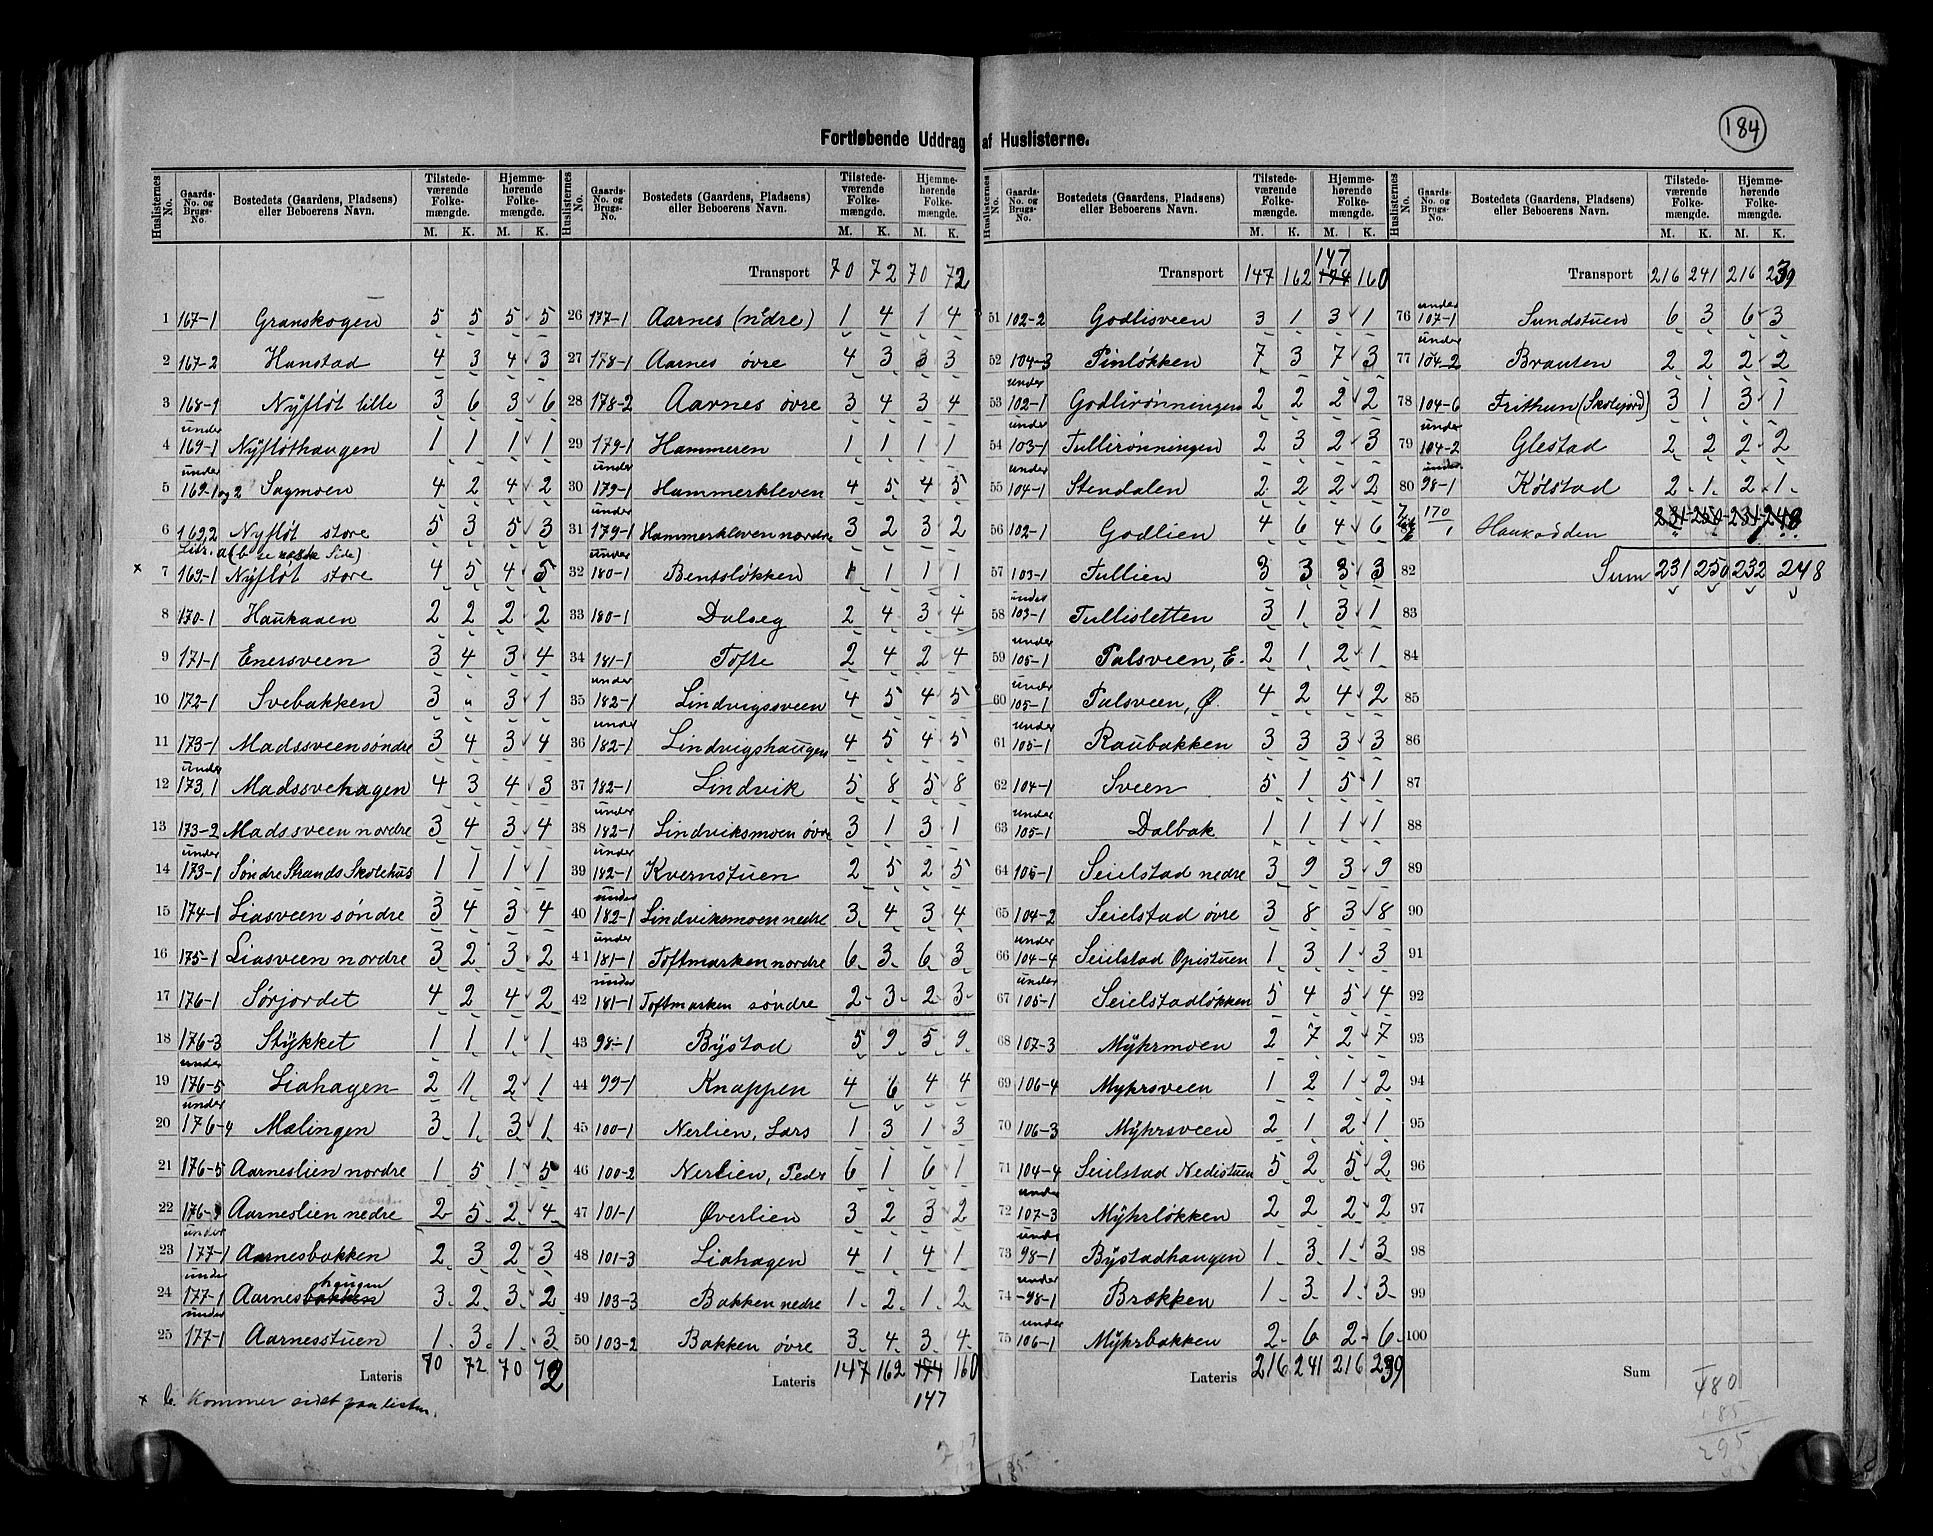 184
Fortløbende Uddrag af Huslisterne.
Huslisternes No. | Gaards-No. og Brugs-No. | Bostedets (Gaardens, Pladsens) eller Beboerens Navn. | Tilstedeværende Folkemængde. M. K. | Hjemmehørende Folkemængde. M. K.
1 167-1 Granskogen 5 5 5 5
2 167-2 Hanstad 4 3 4 3
3 168-1 Nÿfløt lille 3 6 3 6
4 under 169-1 Nÿfløthaugen 1 1 1 1
5 under 169-1 og 2 Sagmoen 4 2 4 2
6 169,2 Nÿfløt store 5 3 5 3
Side)
x 7 169-1 Nÿfløt store 4 5 4 5
8 170-1 Haukaaen 2 2 2 2
9 171-1 Enersveen 3 4 3 4
10 172-1 Svebakken 3 " 3 1
11 173-1 Madssveen søndre 3 4 3 4
12 under 173,1 Madssvehagen 4 3 4 3
13 173-2 Madssveen nordre 3 4 3 4
14 under 173-1 Søndre Strands Skolehus 1 1 1 1
15 174-1 Liasveen søndre 3 4 3 4
16 175-1 Liasveen nordre 3 2 3 2
17 176-1 Sørjordet 4 2 4 2
18 176-3 Stÿkket 1 1 1 1
19 under 176-5 Liahagen 2 1 2 1
20 under 176-4 Mælingen 3 1 3 1
21 176-5 Aarneslien nordre 1 5 1 5
22 176- Aarneslien nedre søndre 2 5 2 4
23 under 177-1 Aarnesbakken 2 3 2 3
24 under 177-1 Aarnesbakken haugen 3 2 3 2
25 under 177-1 Aarnesstuen 1 3 1 3
Lateris 70 72 70 72
x b. kommer sidst paa listen.
Huslisternes No. | Gaards-No. og Brugs-No. | Bostedets (Gaardens, Pladsens) eller Beboerens Navn. | Tilstedeværende Folkemængde. M. K. | Hjemmehørende Folkemængde. M. K.
Transport 70 72 70 72
26 177-1 Aarnes (nedre) 1 4 1 4
27 178-1 Aarnes øvre 4 3 3 3
28 178-2 Aarnes øvre 3 4 3 4
29 179-1 Hammeren 1 1 1 1
30 under 179-1 Hammerkleven 4 5 4 5
31 under 179-1 Hammerkleven nordre 3 2 3 2
32 under 180-1 Bentsløkken 1 1 1 1
33 180-1 Dalseg 2 4 3 4
34 181-1 Tofte 2 4 2 4
35 under 182-1 Lindvigssveen 4 5 4 5
36 under 182-1 Lindvigshaugen 4 5 4 5
37 182-1 Lindvik 5 8 5 8
38 under 182-1 Lindviksmoen øvre 3 1 3 1
39 under 182-1 Kvernstuen 2 5 2 5
40 under 182-1 Lindviksmoen nedre 3 4 3 4
41 under 181-1 Toftmarken nordre 6 3 6 3
42 under 181-1 Toftmarken søndre 2 3 2 3
43 98-1 Bÿstad 5 9 5 9
44 99-1 Knappen 4 6 4 4
45 100-1 Nerlien, Lars 1 3 1 3
46 100-2 Nerlien, Peder 6 1 6 1
47 101-1 Øverlien 3 2 3 2
48 101-3 Liahagen 4 1 4 1
49 103-3 Bakken nedre 1 2 1 2
50 103-2 Bakken øvre 3 4 3 4
Lateris 147 162 174 160
147
Huslisternes No. | Gaards-No. og Brugs-No. | Bostedets (Gaardens, Pladsens) eller Beboerens Navn. | Tilstedeværende Folkemængde. M. K. | Hjemmehørende Folkemængde. M. K.
147
Transport 147 162 174 160
51 102-2 Godlisveen 3 1 3 1
52 104-3 Pinløkken 7 3 7 3
53 under 102-1 Godlirønningen 2 2 2 2
54 under 103-1 Tullirønningen 2 3 2 3
55 under 104-1 Stendalen 2 2 2 2
56 102-1 Godlien 4 6 4 6
57 103-1 Tullien 3 3 3 3
58 under 103-1 Tullisletten 3 1 3 1
59 under 105-1 Palsveen, E. 2 1 2 1
60 under 105-1 Palsveen, Ø. 4 2 4 2
61 under 105-1 Raubakken 3 3 3 3
62 104-1 Sveen 5 1 5 1
63 under 105-1 Dalbak 1 1 1 1
64 105-1 Seielstad nedre 3 9 3 9
65 104-2 Seielstad øvre 3 8 3 8
66 under 104-4 Seielstad Opistuen 1 3 1 3
67 under 105-1 Seielstadløkken 5 4 5 4
68 107-3 Mÿhrmoen 2 7 2 7
69 106-4 Myhrsveen 1 2 1 2
70 106-3 Mÿhrsveen 2 1 2 1
71 104-4 Seielstad Nedistuen 5 2 5 2
72 under 107-3 Mÿhrløkken 2 2 2 2
73 under 98-1 Bÿstadhaugen 1 3 1 3
74 under 98-1 Brækken 1 3 1 3
75 under 106-1 Mÿhrbakken 2 6 2 6
Lateris 216 241 216 239
Huslisternes No. | Gaards-No. og Brugs-No. | Bostedets (Gaardens, Pladsens) eller Beboerens Navn. | Tilstedeværende Folkemængde. M. K. | Hjemmehørende Folkemængde. M. K.
Transport 216 241 216 239
76 under 107-1 Sundstuen 6 3 6 3
77 under 104-2 Brauten 2 2 2 2
78 104-6 Frithun (Skolejord) 3 1 3 1
79 under 104-2 Glestad 2 2 2 2
80 under 98-1 Kølstad 2 1 2 1
170/1 Haukaaden 231 250 231 248
82 Sum 231 250 232 248
83
84
85
86
87
88
89
90
91
92
93
94
95
96
97
98
99
100
Sum
480
185
295
185